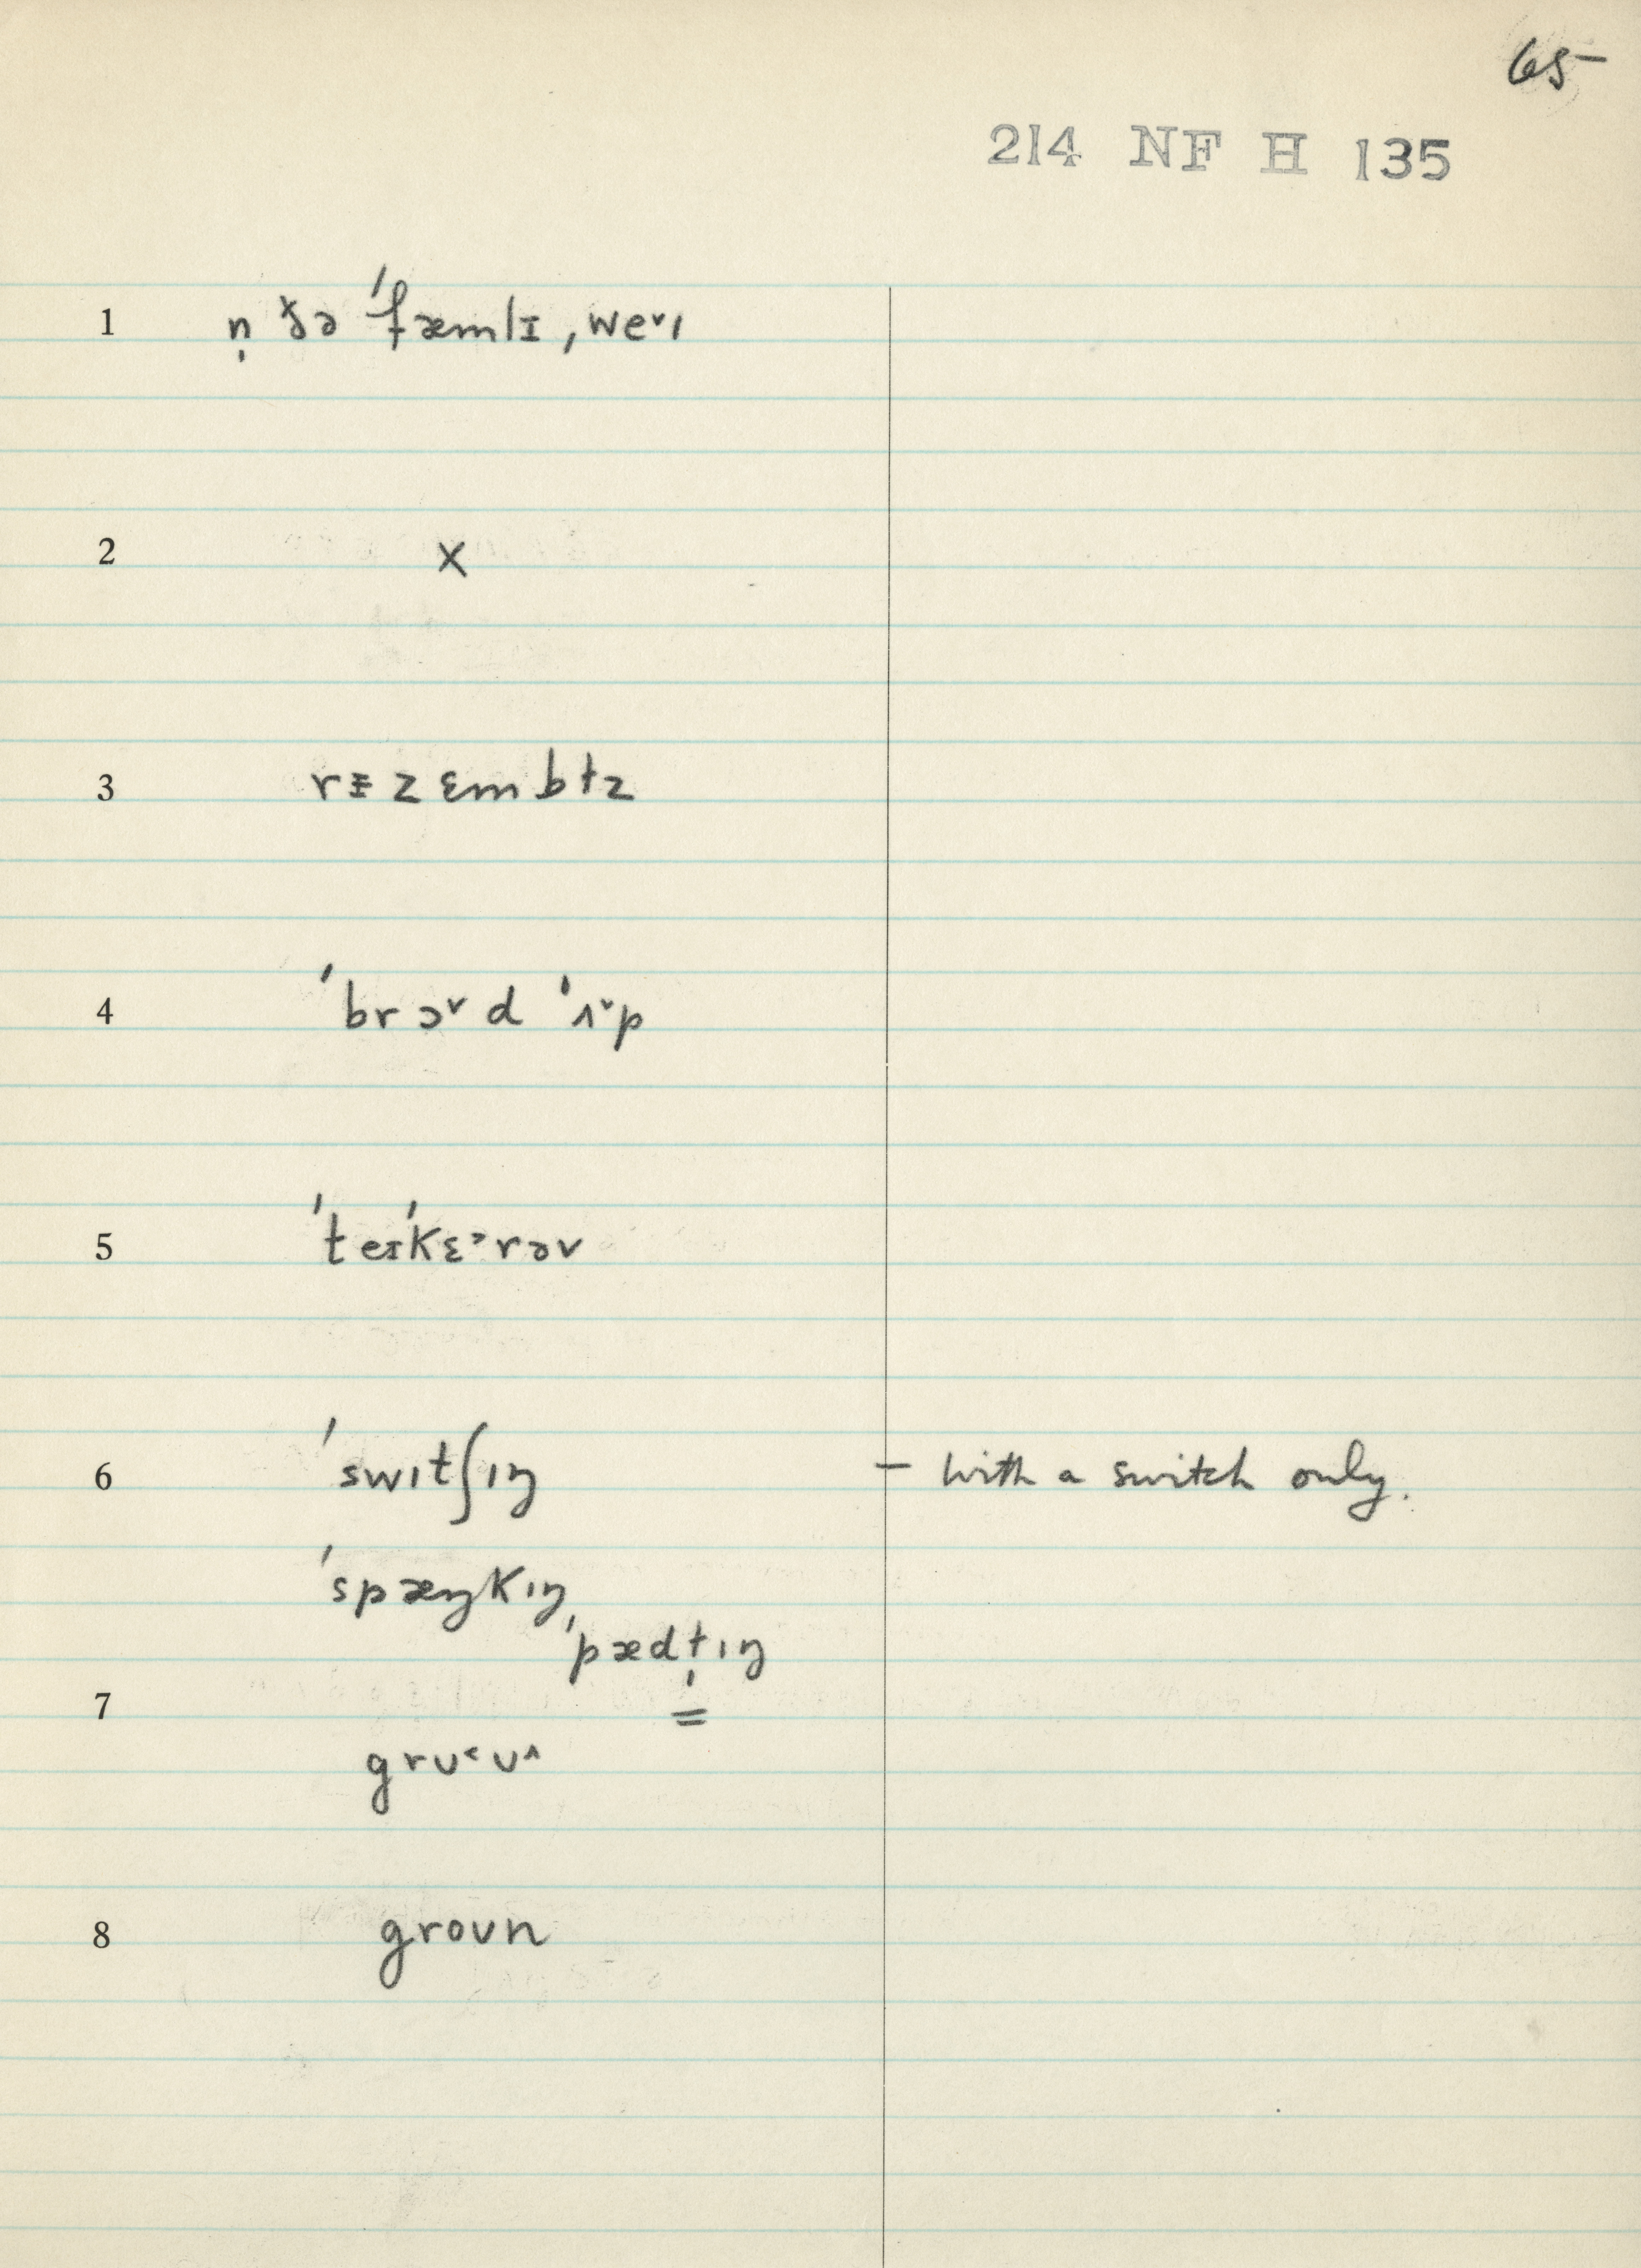 65
214 NF H 135
1 n̩ ðə ˈfæmlɪ ˌweˇɪ
2 X
3 rᵻzɛmbɫz
4 ˈbrɔˇd ˈʌˇp
5 ˈteɪˈkɛᵊrəv
6 ˈswɪtʃɪŋ – with a switch only.
ˈspæŋkɪŋ,
ˈpædɫ̩ɪŋ
7 =
grʊ˂ʊ˄
8 groʊn